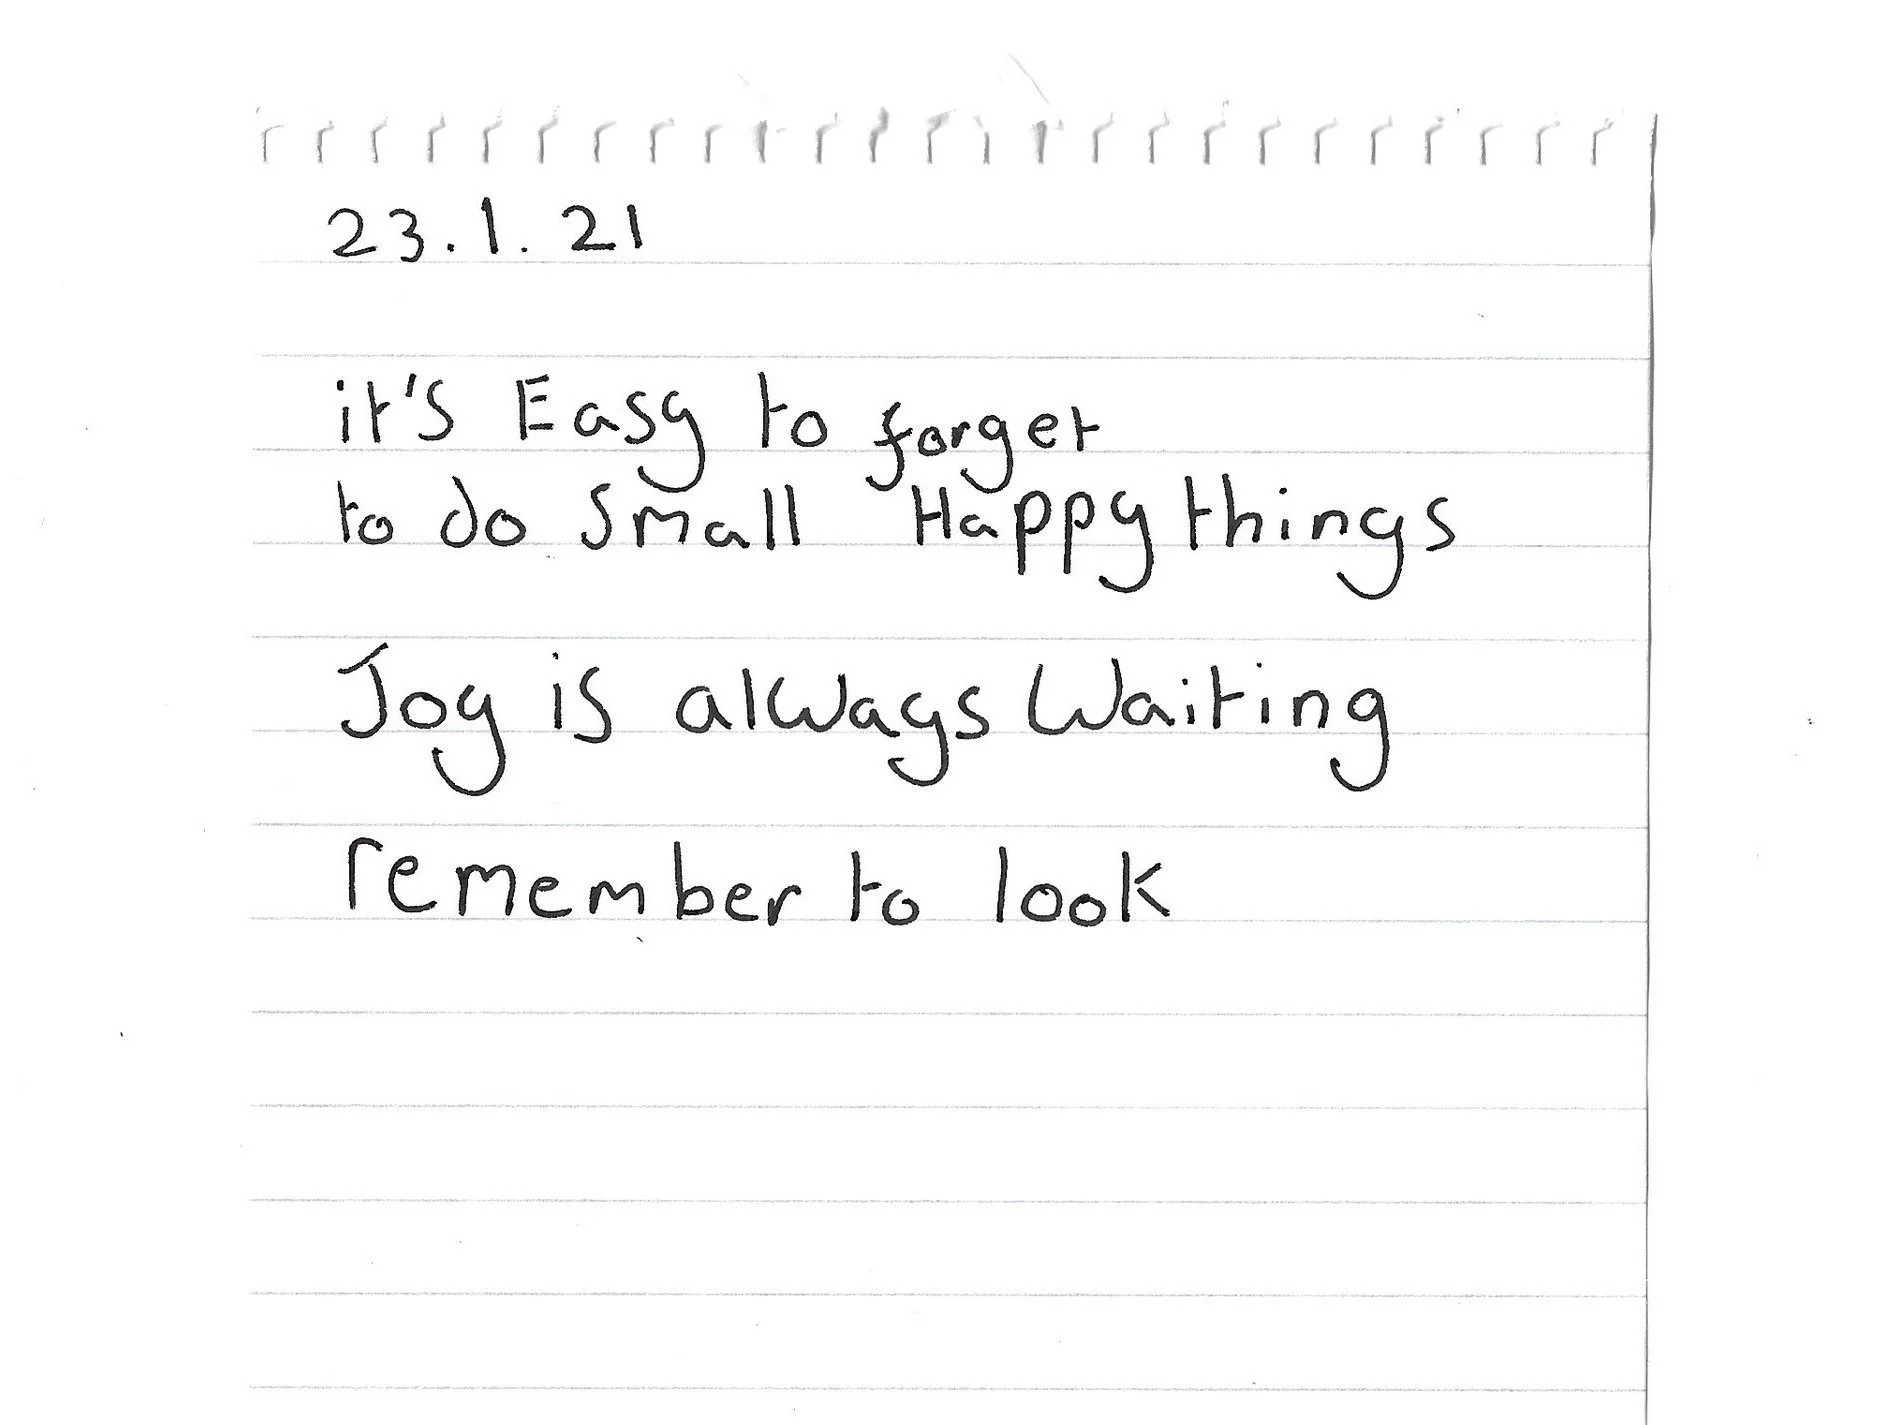 23.1.21
it's Easy to forget
to do small Happy things
Joy is always Waiting
remember to look